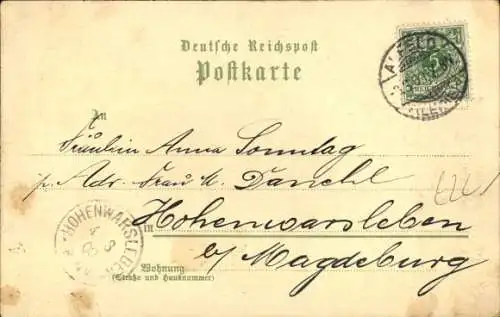 Deutsche Reichspost
Postkarte
An
Fräulein Anna Sonntag
p. Adr. Frau M. Danehl
in Hohenwarsleben
b/ Magdeburg
Wohnung
(Straße und Hausnummer)
ALFELD
HOHENWARSLEBEN